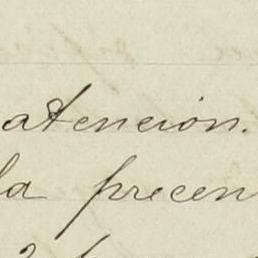 atencion.
la precen